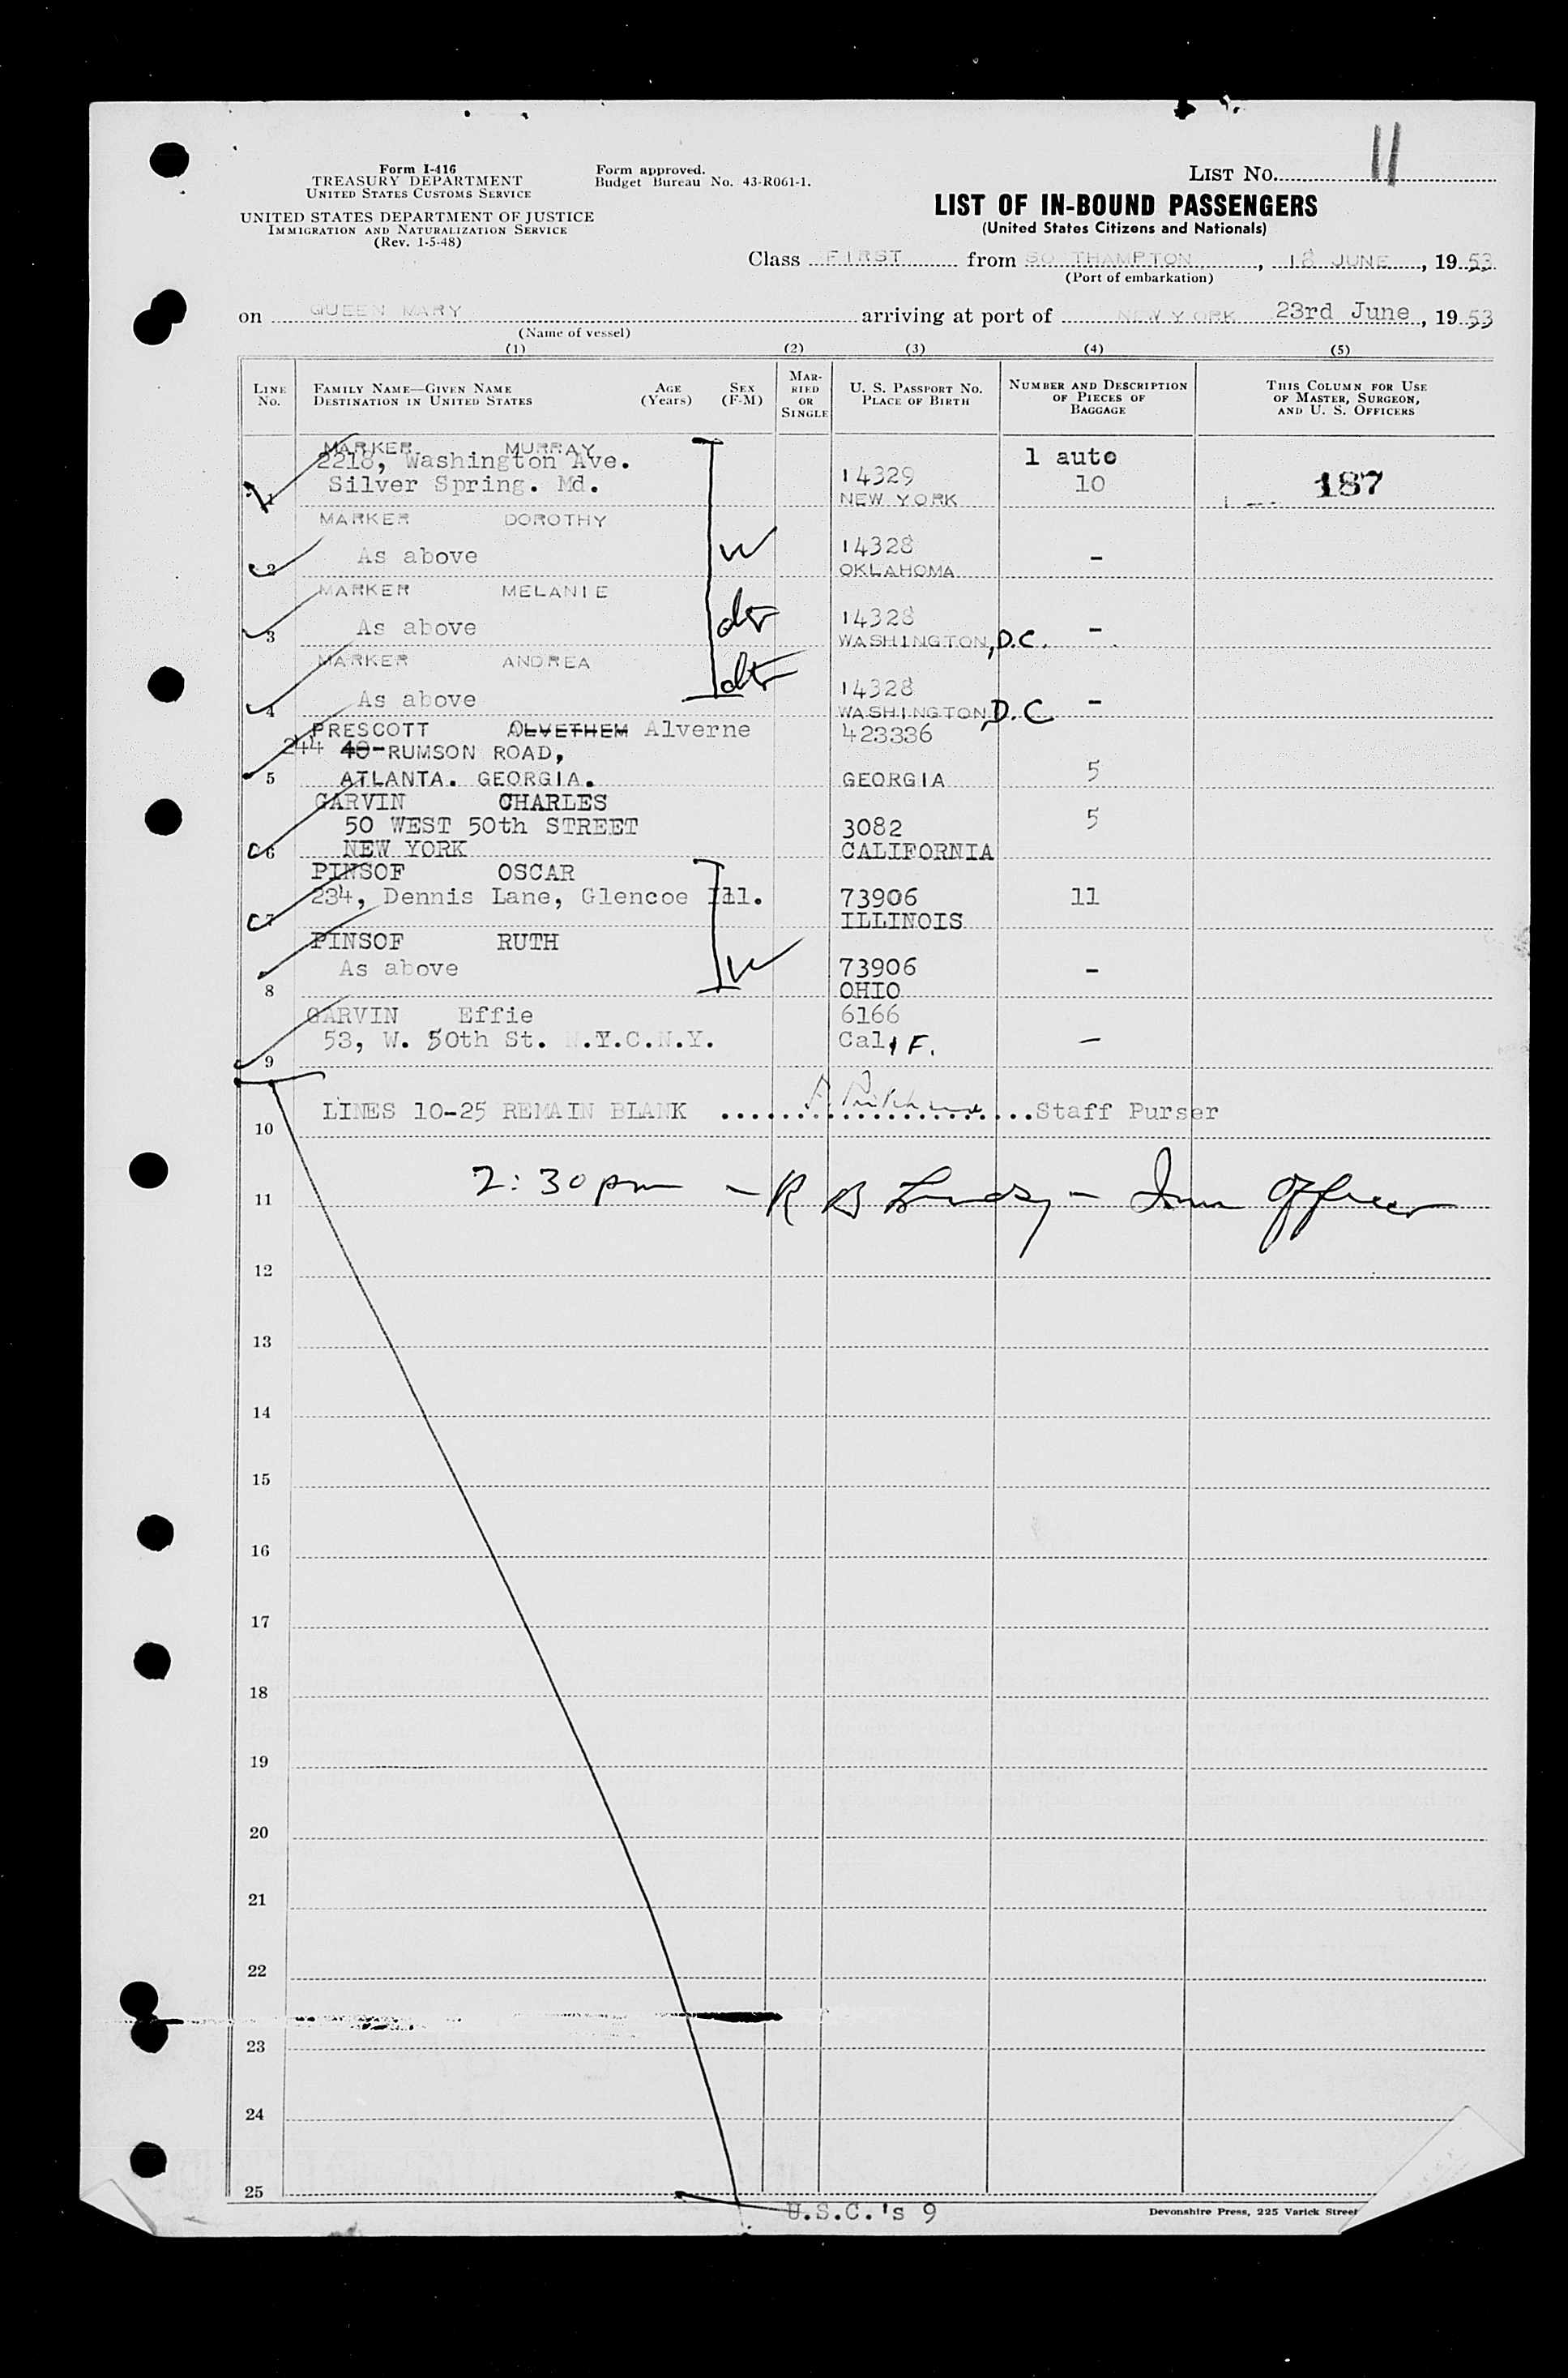 11
Form I-416
TREASURY DEPARTMENT
UNITED STATES CUSTOMS SERVICE
UNITED STATES DEPARTMENT OF JUSTICE
IMMIGRATION AND NATURALIZATION SERVICE
(Rev. 1-5-48)
Form approved.
Budget Bureau No. 43-R061-1.
LIST No.
LIST OF IN-BOUND PASSENGERS
(United States Citizens and Nationals)
Class FIRST from SO THAMPTON, 18 JUNE, 1953
(Port of embarkation)
on QUEEN MARY arriving at port of NEW YORK 23rd June, 1953
(Name of vessel)
(1) (2) (3) (4) (5)
LINE No.
FAMILY NAME—GIVEN NAME
DESTINATION IN UNITED STATES
AGE (Years)
SEX (F-M)
MARRIED OR SINGLE
U. S. PASSPORT NO.
PLACE OF BIRTH
NUMBER AND DESCRIPTION OF PIECES OF BAGGAGE
THIS COLUMN FOR USE OF MASTER, SURGEON, AND U. S. OFFICERS
MARKER MURRAY
2218, Washington Ave. 1 auto
Silver Spring. Md. 14329 10 187
1 NEW YORK
MARKER DOROTHY
As above W 14328 -
2 OKLAHOMA
MARKER MELANIE
As above dtr 14328 -
3 WASHINGTON, D.C.
MARKER ANDREA
As above dtr 14328 -
4 WASHINGTON D.C
PRESCOTT OLVETHEM Alverne 423336
244 40-RUMSON ROAD,
5 ATLANTA. GEORGIA. GEORGIA 5
GARVIN CHARLES
50 WEST 50th STREET 3082 5
6 NEW YORK CALIFORNIA
PINSOF OSCAR
234, Dennis Lane, Glencoe Ill. 73906 11
7 ILLINOIS
PINSOF RUTH
As above W 73906 -
8 OHIO
GARVIN Effie 6166
53, W. 50th St. N.Y.C.N.Y. Calif. —
9
LINES 10-25 REMAIN BLANK Staff Purser
10
2:30 pm - R B - Imm Officer
11
12
13
14
15
16
17
18
19
20
21
22
23
24
25
U.S.C.'s 9
Devonshire Press, 225 Varick Street